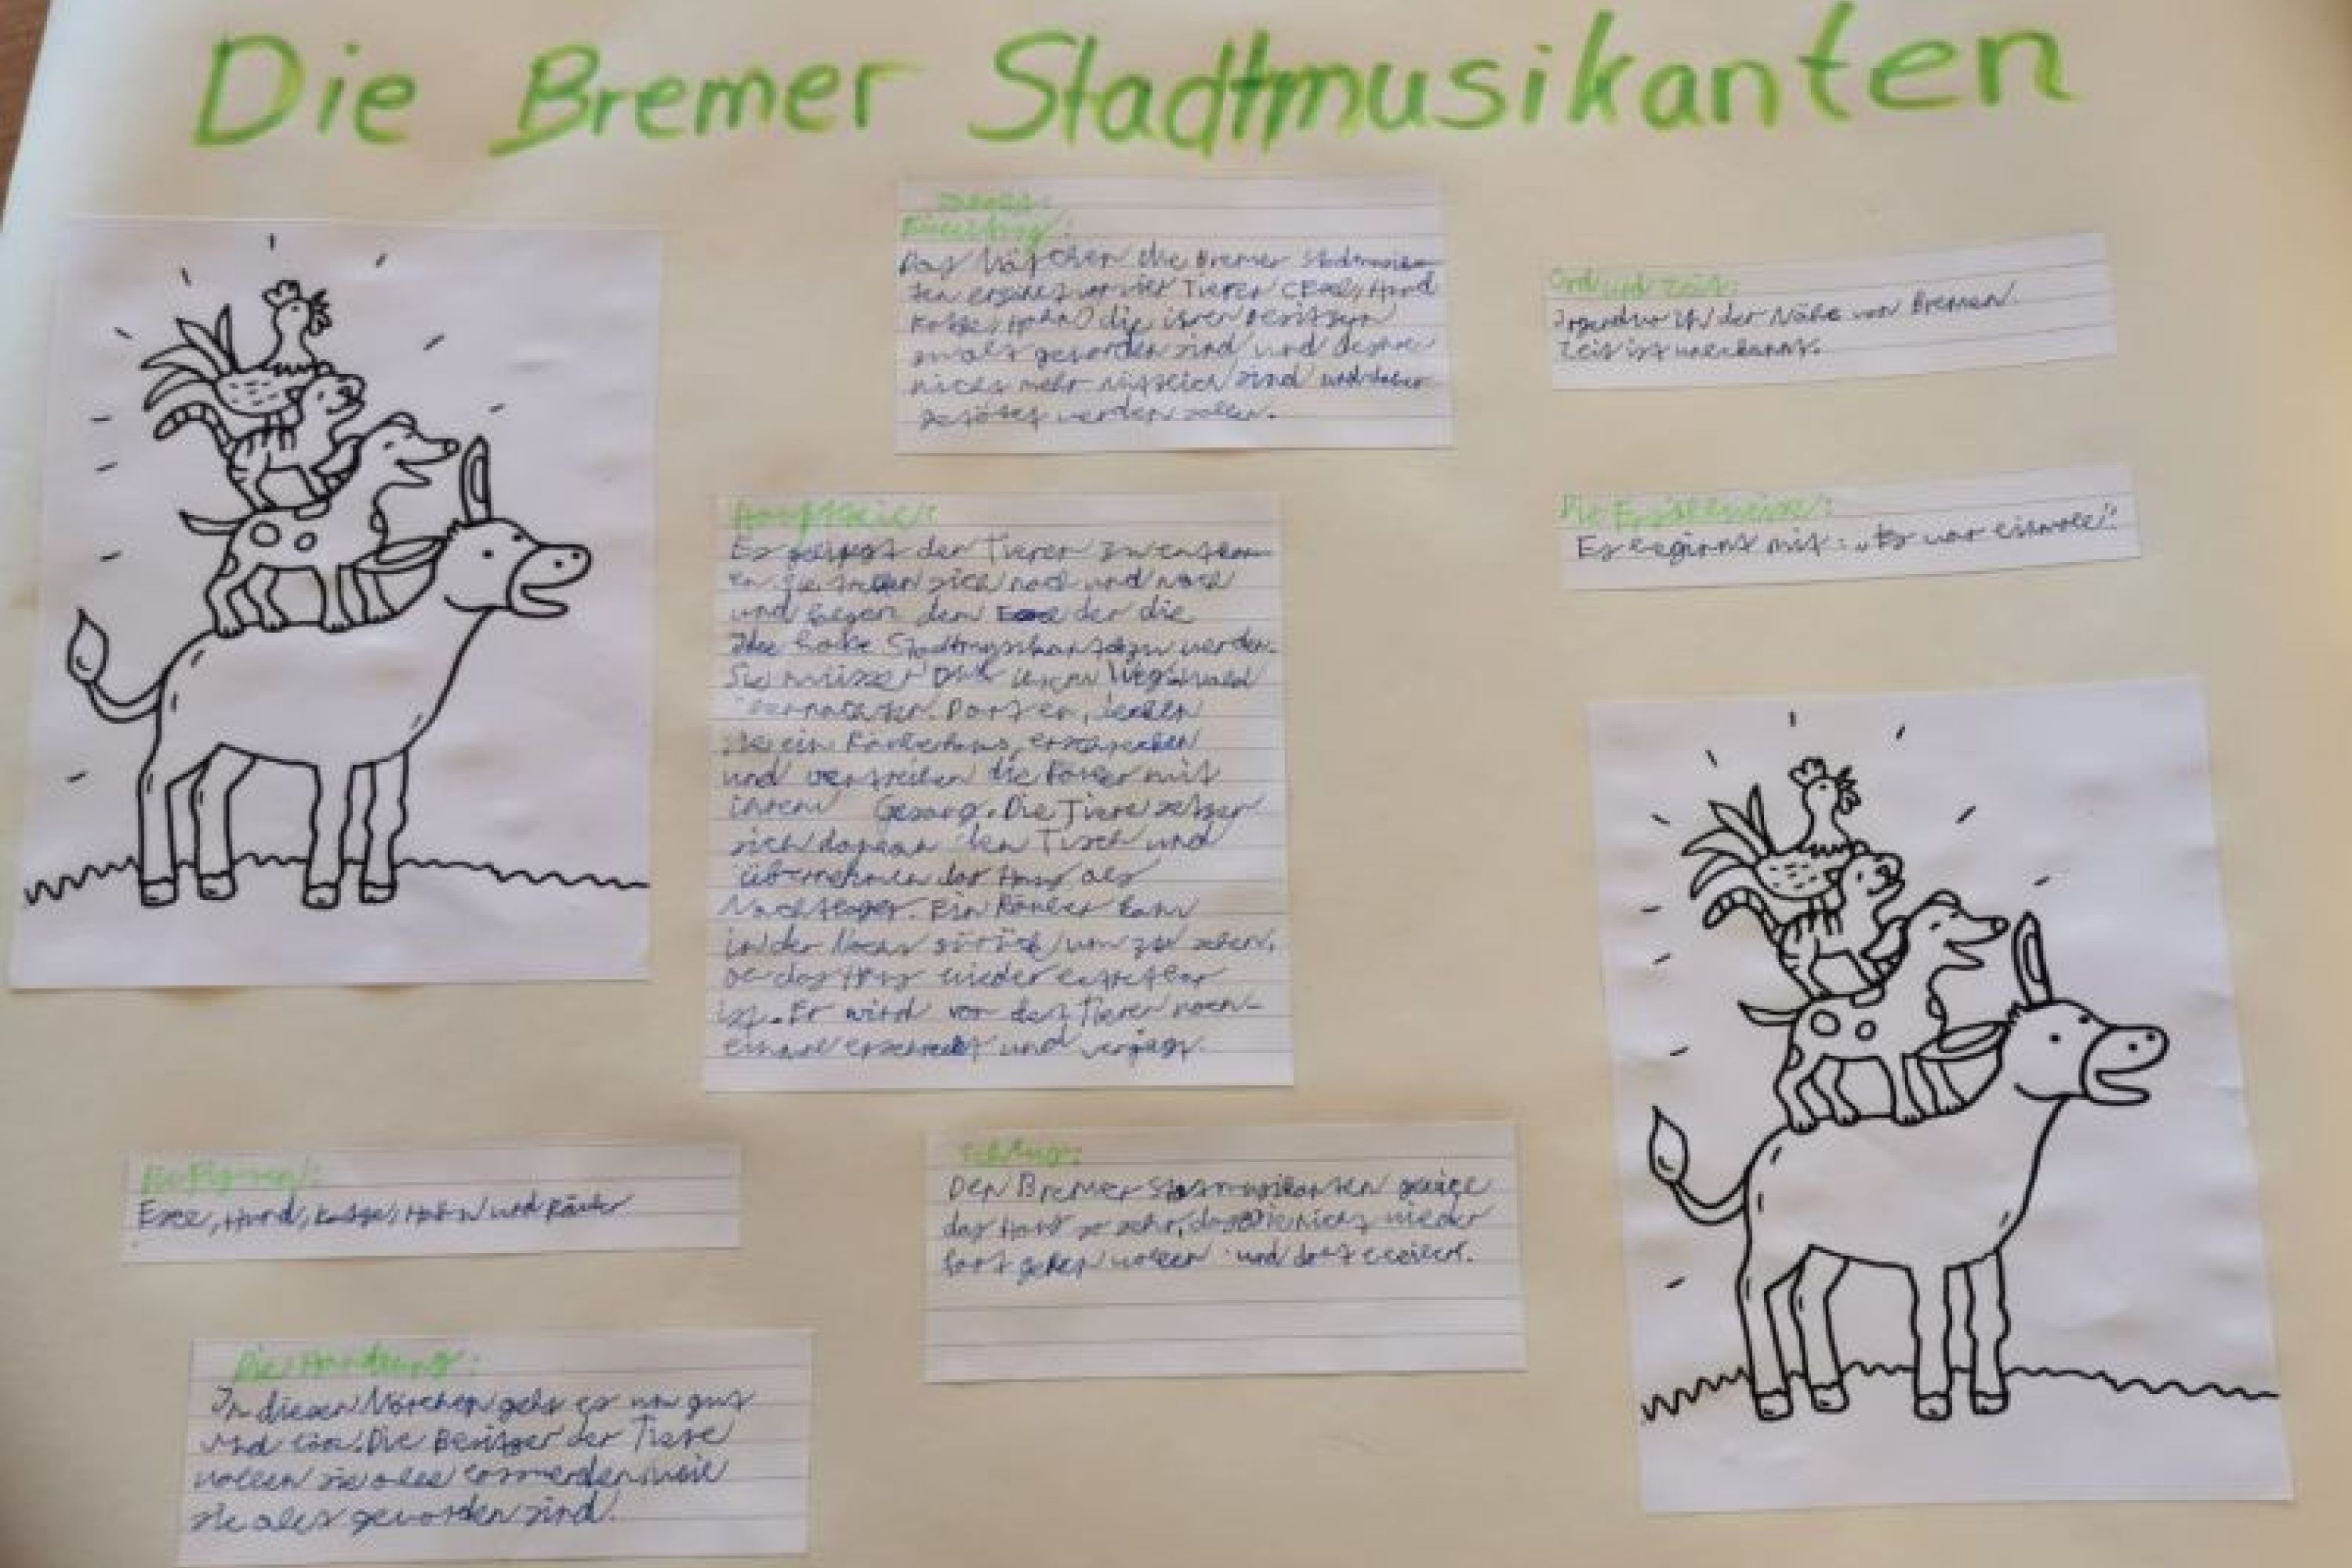 Die Bremer Stadtmusikanten
Einleitung:
Das Märchen die Bremer Stadtmusikan-
ten von vier Tieren (Esel, Hund
Katze, Hahn) die ihren Besitzern
zu alt geworden sind und
nicht mehr nützlich sind und daher
getötet werden sollen.
Ord und Zeit:
Irgendwo in der Nähe von Bremen.
Zeit ist unbekannt.
Die Besonderheiten:
Es beginnt mit: „Es war einmal".
Hauptteil:
Es gelingt den Tieren zu entkom-
en. Sie treffen sich nach und nach
und folgen dem Esel der die
Idee hatte Stadtmusikanten zu werden.
Sie müssen ihrem Weg Wald
übernachten. Dort
sie ein Räuberhaus, erschrecken
und vertreiben die Räuber mit
ihrem Gesang. Die Tiere setzen
sich den Tisch und
übernehmen das Haus als
Nachtlager. Ein Räuber kam
in der Nacht zurück um zu sehen,
ob das Haus wieder
ist. Er wird von den Tieren noch-
einmal erschreckt und verjagt.
Die Figuren:
Esel, Hund, Katze, Hahn und Räuber
Schluss:
Den Bremer Stadtmusikanten
das Haus so sehr, das sie nicht wieder
fort gehen wollen und dort bleiben.
Die Handlung:
In diesen Märchen geht es um gut
und Die Besitzer der Tiere
wollen sie alle loswerden, weil
sie alt geworden sind.